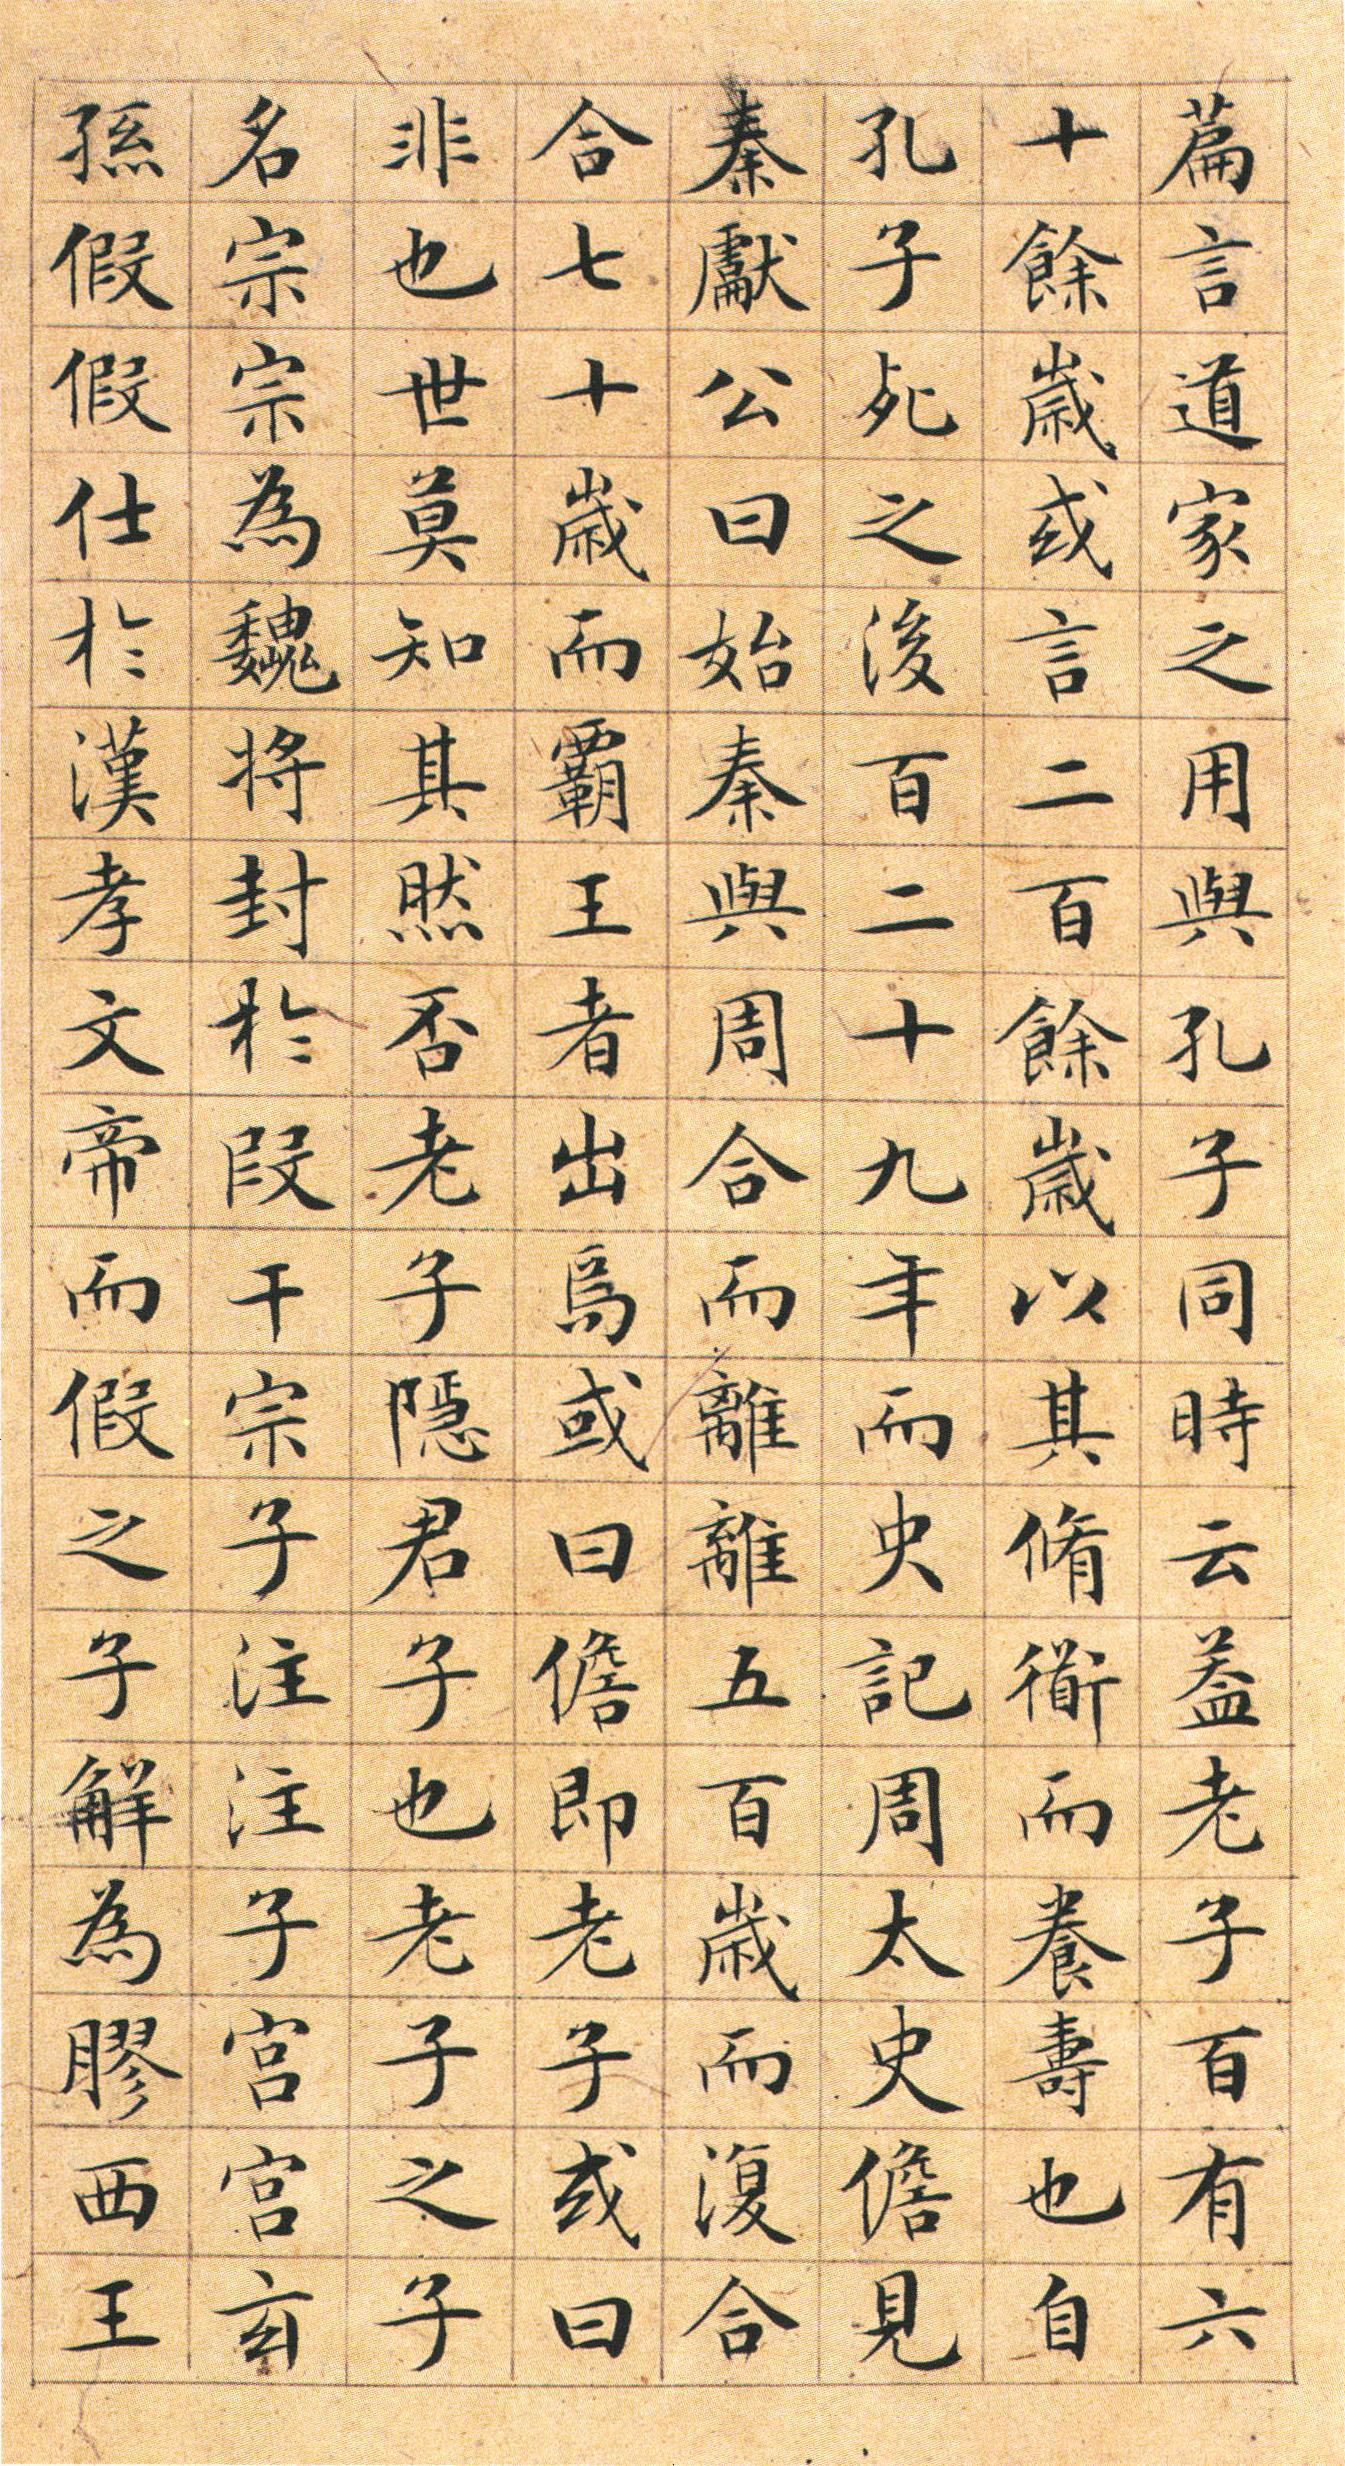 篇言道家之用與孔子同時云蓋老子百有六
十餘歲或言二百餘歲以其脩衟而養壽也自
孔子死之後百二十九年而史記周太史儋見
秦獻公曰始秦與周合而離離五百歲而復合
合七十歲而霸王者出焉或曰儋即老子或曰
非也世莫知其然否老子隱君子也老子之子
名宗宗為魏將封於段干宗子注注子宮宮玄
孫假假仕於漢孝文帝而假之子解為膠西王